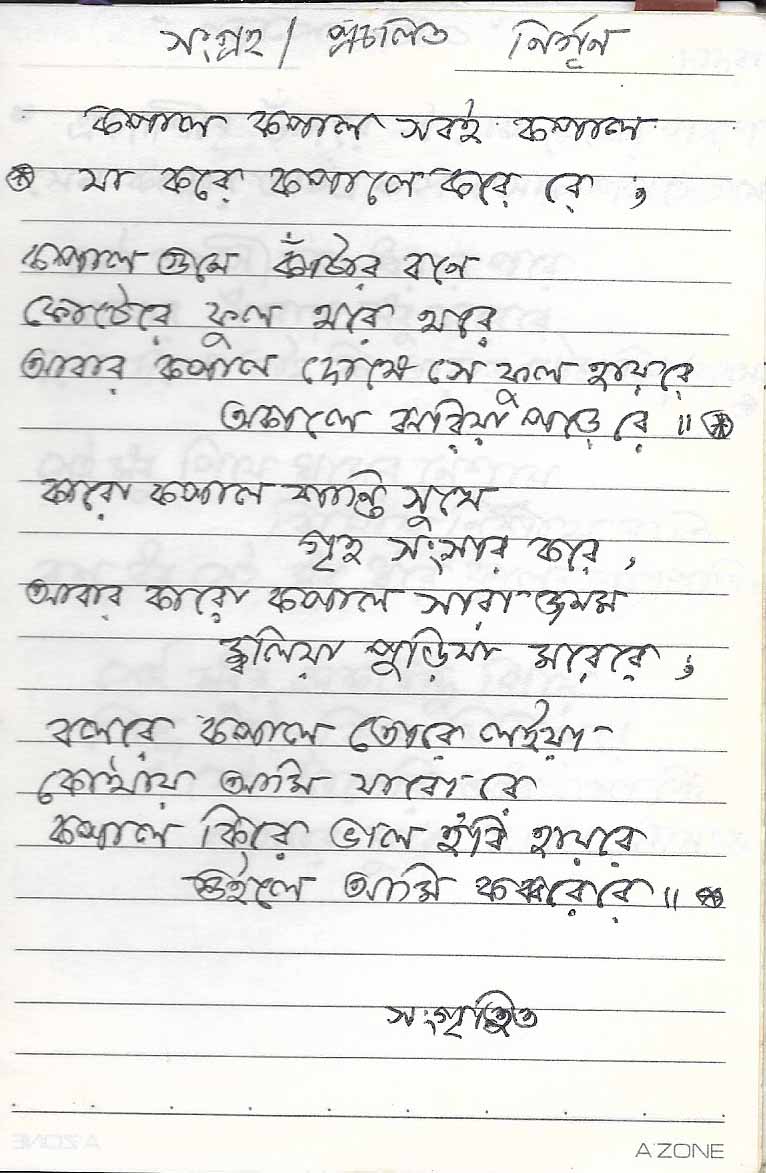 সংগ্রহ / প্রচলিত নির্গুন
কপাল কপাল সবই কপাল
যা করে কপালে করে রে ;
কপাল গুনে কাঁটার বনে
ফোটেরে ফুল থরে থরে
আবার কপাল দোষে সে ফুল হায়রে
অকালে ঝরিয়া পড়ে রে ॥
কারো কপাল শান্তি সুখে
গৃহ সংসার করে ,
আবার কারো কপাল সারা জনম
জ্বলিয়া পুড়িয়া মরেরে ;
বলরে কপাল তোরে লইয়া
কোথায় আমি যাবো রে
কপাল কিরে ভাল হবি হায়রে
শুইলে আমি কবরেরে ॥
সংগৃহিত
A'ZONE